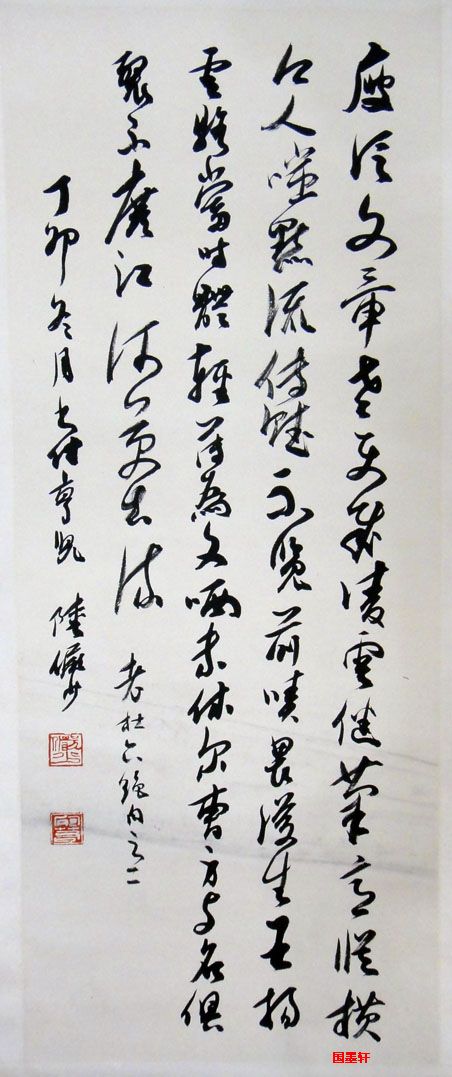 庾信文章老更成凌雲健筆意縱橫
今人嗤點流傳賦不覺前賢畏後生王楊
盧駱當時體輕薄為文哂未休尔曹身与名俱
滅不廢江河萬古流 老杜六絕內之二
丁卯冬月书付亨兒 陸儼少
国墨轩